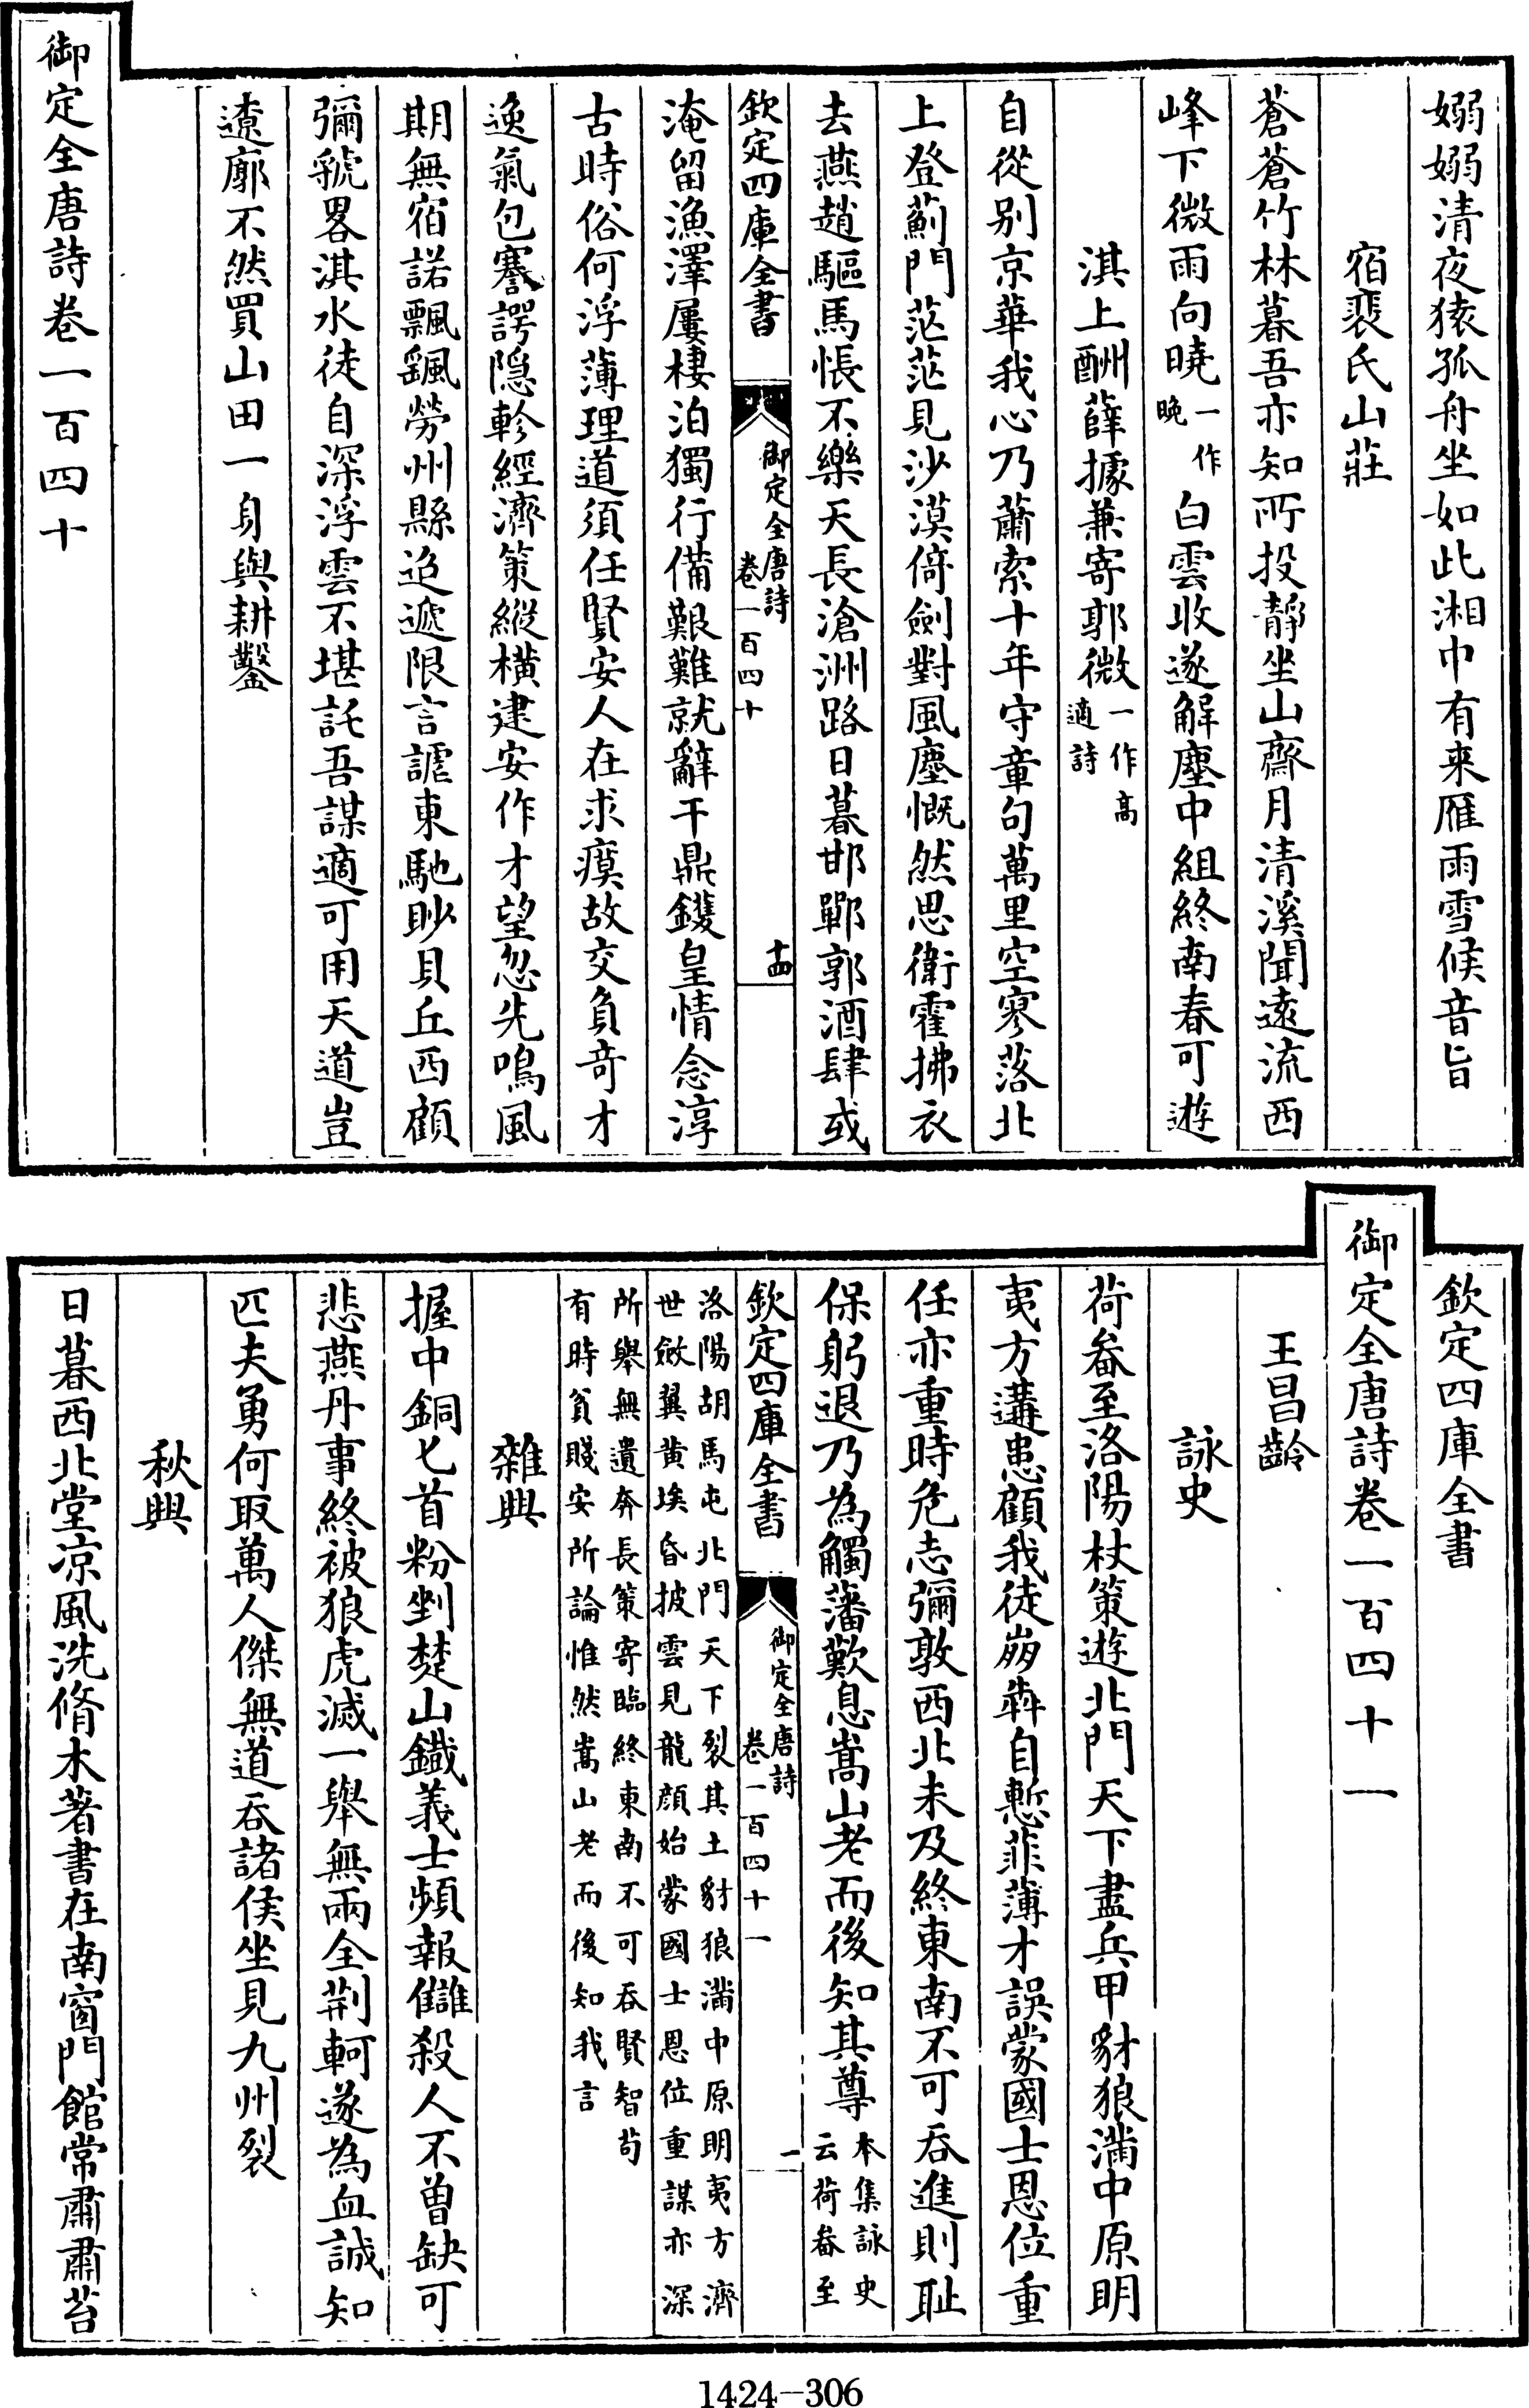 嫋嫋清夜猿孤舟坐如此湘中有来雁雨雪候音旨
宿裴氏山莊
蒼蒼竹林暮吾亦知所投靜坐山齋月清溪聞遠流西
峰下微雨向曉一作晚白雲收遂解塵中組終南春可遊
淇上酬薛據兼寄郭微一作高適詩
自從別京華我心乃蕭索十年守章句萬里空寥落北
上登薊門茫茫見沙漠倚劍對風塵慨然思衛霍拂衣
去燕趙驅馬悵不樂天長滄洲路日暮邯鄲郭酒肆或
欽定四庫全書
御定全唐詩
卷一百四十
十四
淹留漁澤屢棲泊獨行備艱難就辭干鼎鑊皇情念淳
古時俗何浮薄理道須任賢安人在求瘼故交負奇才
逸氣包謇諤隱軫經濟策縱橫建安作才望忽先鳴風
期無宿諾飄颻勞州縣迢遞限言謔東馳眇貝丘西顧
彌虢畧淇水徒自深浮雲不堪託吾謀適可用天道豈
遼廓不然買山田一身與耕鑿
御定全唐詩卷一百四十
欽定四庫全書
御定全唐詩卷一百四十一
王昌齡
詠史
荷畚至洛陽杖策遊北門天下盡兵甲豺狼滿中原明
夷方遘患顧我徒崩犇自慙菲薄才誤蒙國士恩位重
任亦重時危志彌敦西北未及終東南不可吞進則恥
保躬退乃為觸藩歎息嵩山老而後知其尊本集詠史云荷畚至
欽定四庫全書
御定全唐詩
卷一百四十一
一
洛陽胡馬屯北門天下裂其土豺狼滿中原明夷方濟
世斂翼黄埃昏披雲見龍顔始蒙國士恩位重謀亦深
所舉無遺奔長策寄臨終東南不可吞賢智苟
有時貧賤安所論惟然嵩山老而後知我言
雜興
握中銅匕首粉剉楚山鐵義士頻報讎殺人不曾缺可
悲燕丹事終被狼虎滅一舉無兩全荆軻遂為血誠知
匹夫勇何取萬人傑無道吞諸侯坐見九州裂
秋興
日暮西北堂涼風洗脩木著書在南窗門館常肅肅苔
1424—306